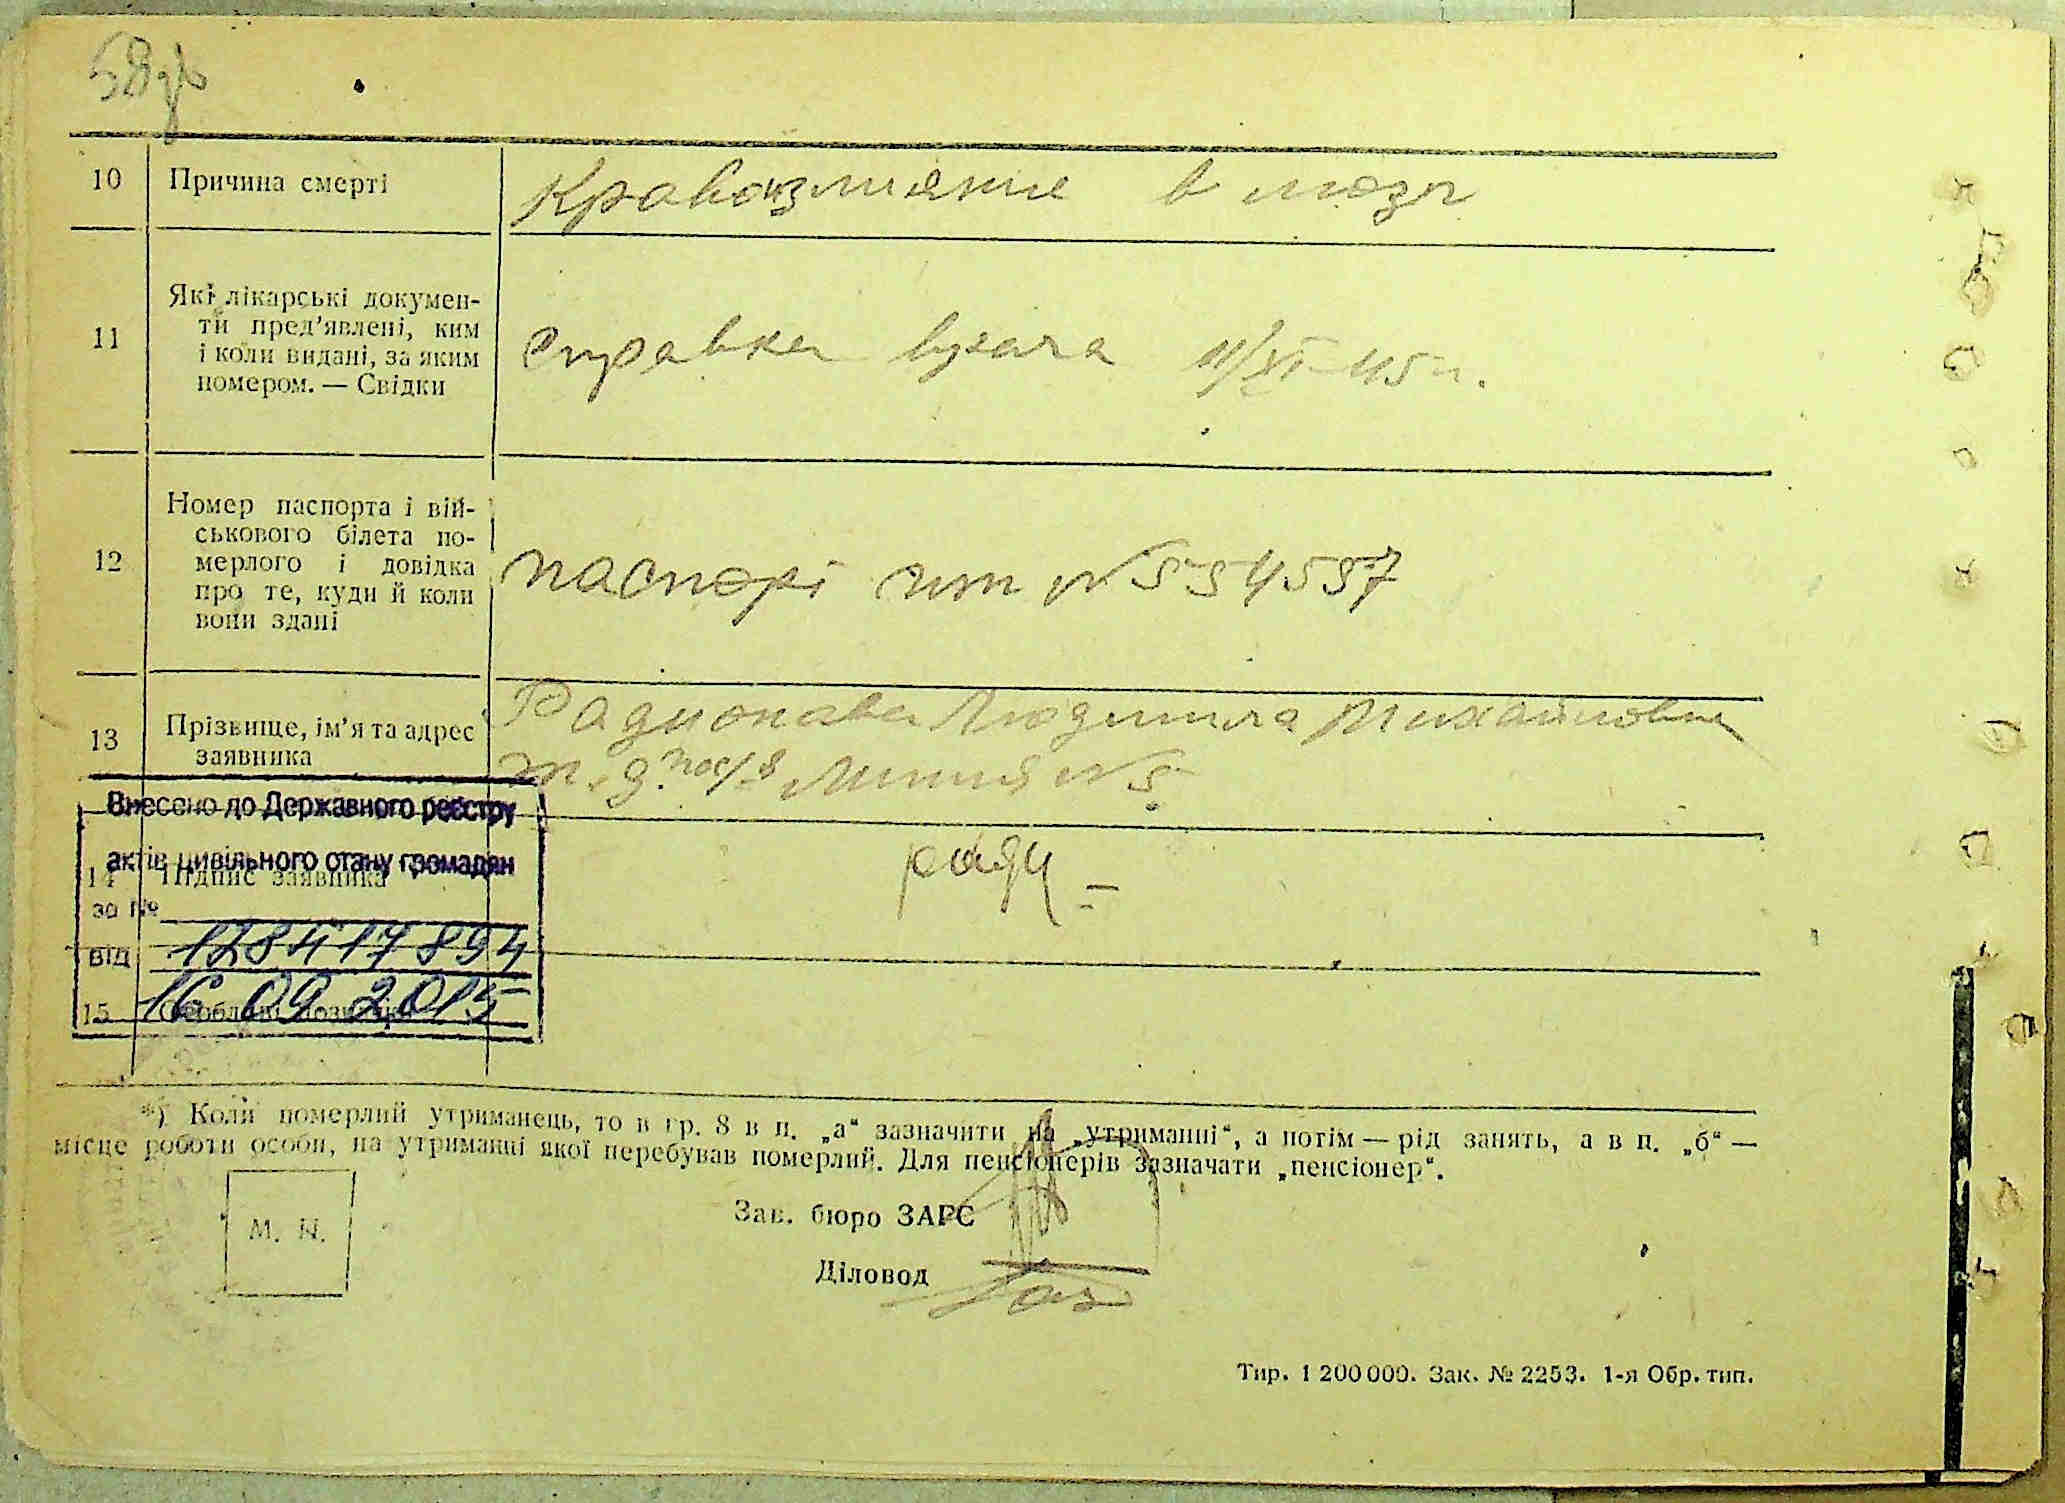 10 Причина смерті Кравоизлияние в мозг
11 Які лікарські докумен-
ти пред'явлені, ким
і коли видані, за яким
номером. — Свідки
Справка врача 11/XI-45 г.
12 Номер паспорта і вій-
ськового білета по-
мерлого і довідка
про те, куди й коли
вони здані
паспорт
13 Прізвище, ім'я та адрес
заявника
Радионава Людмила Михайловна
Линия № 5
Внесено до Державного реєстру
актів цивільного стану громадян
14 Підпис заявника
за №
128417894
від
16 09 2015
15 Особливі
*) Коли померлий утриманець, то в гр. 8 в п. „а“ зазначити на „утриманні“, а потім — рід занять, а в п. „б“ —
місце роботи особи, на утриманні якої перебував померлий. Для пенсіонерів зазначати „пенсіонер“.
Зав. бюро ЗАГС
М. П.
Діловод
Тир. 1 200 000. Зак. № 2253. 1-я Обр. тип.